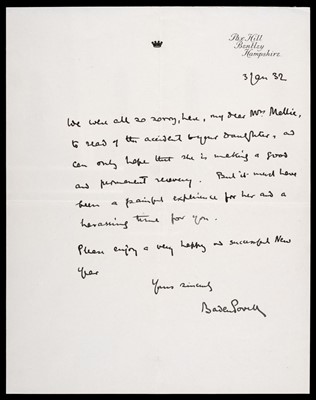 Pax Hill
Bentley
Hampshire
3 Jan 32
We were all so sorry, here, my dear Mrs Mellis,
to read of the accident to your daughter, and
can only hope that she is making a good
and permanent recovery. But it must have
been a painful experience for her and a
harassing time for you.
Please enjoy a very happy and successful New
Year
Yours sincerely
Baden Powell